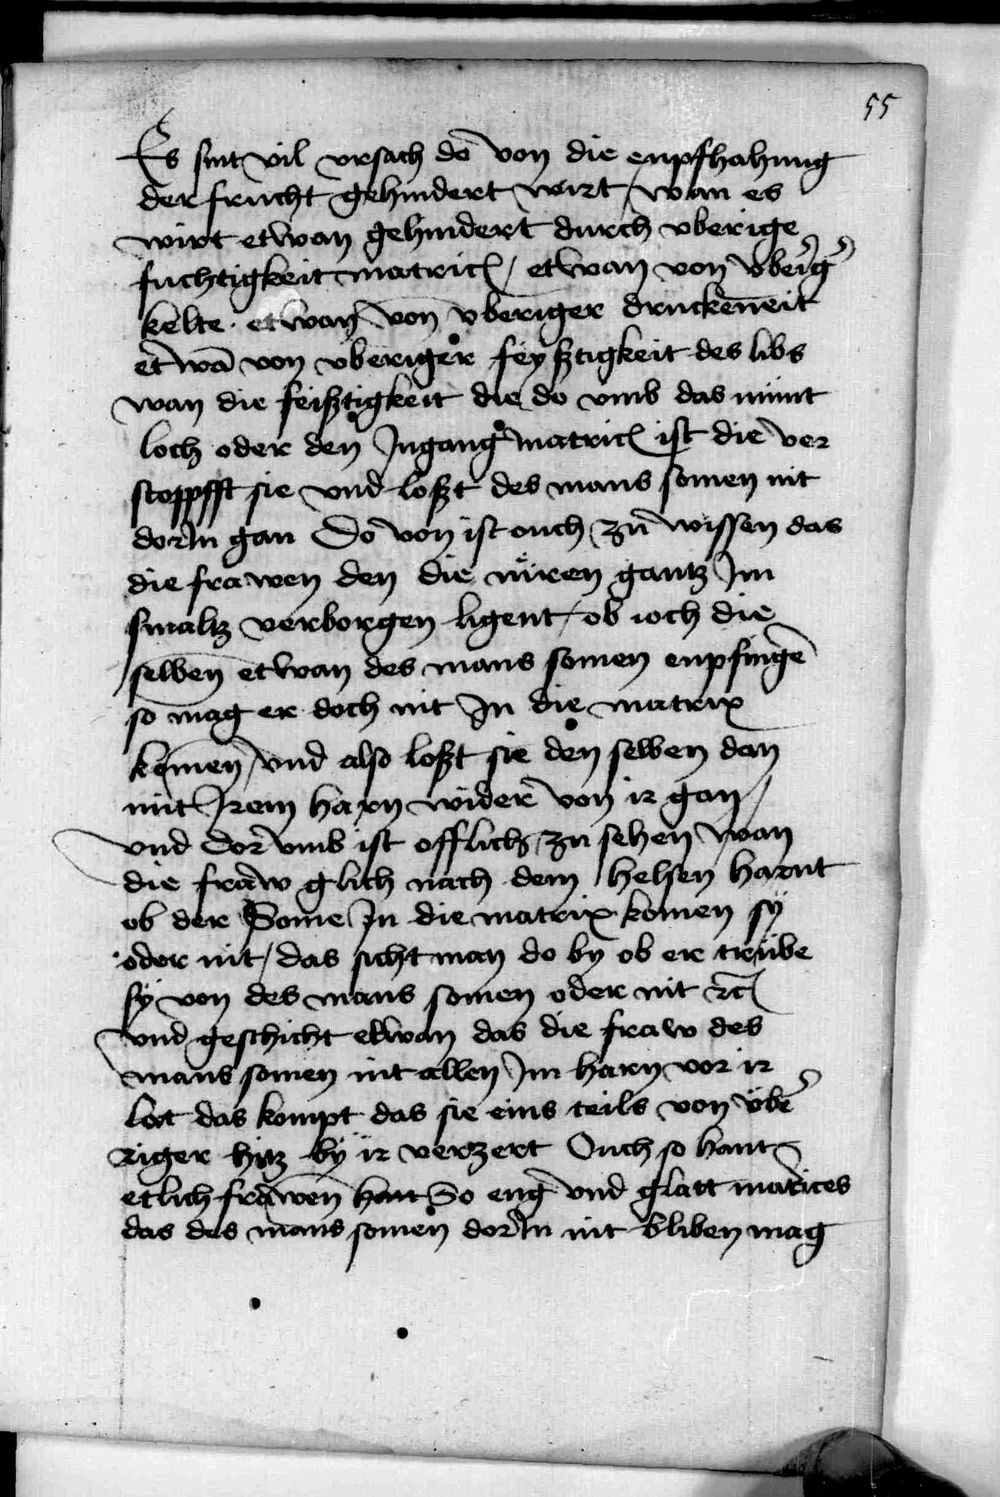 55
Es sint vil vrsach do von die enpfhahung
der frucht gehindert wirt / wan es
wirt etwan gehindert durch vberige
fuchtigkeit matricis / etwan von v̈berig̾
kelte · etwan von vberiger druckenheit
etwā von vberiger feysztigkeit des libs
wan die feisztigkeit die do vmb das munt
loch oder den Ingang matricis ist die ver
stoppfft sie vnd loszt des mans somen nit
dorIn gan Do von ist ouch zů wissen das
die frawen den die nüren gantz Im
smaltz verborgen ligent / ob ioch die
selben etwan des mans somen enpfingē
so mag er doch nit In die matrix
komen / vnd also loszt sie den selben dan
mit Irem harn wider von ir gan /
vnd dor vmb ist offlich zu sehen wan
die fraw glich nach dem helsen harnt
ob der Some In die matrix komen sÿ
oder nit / das sicht man do by ob er trübe
sÿ von des mans somen oder nit ꝛc
vnd geschicht etwan das die fraw des
mans somen nit allen Im harn vor ir
lot das kompt das sie eins teils von v̈be
riger hitz bÿ ir verzert Ouch so hant
etlich frawen hant So eng vnd glatt matrices
das des mans somen dorIn nit bliben mag